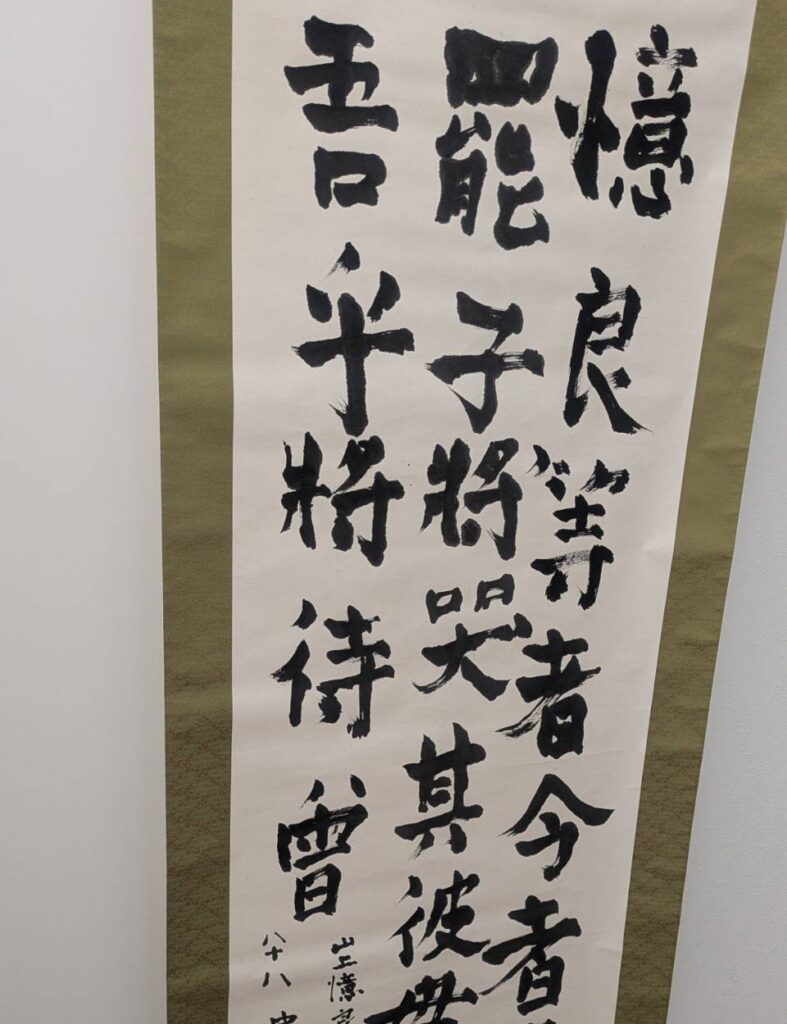 憶良等者今者
罷子將哭其彼母
吾乎將待曾
山上憶良
八十八